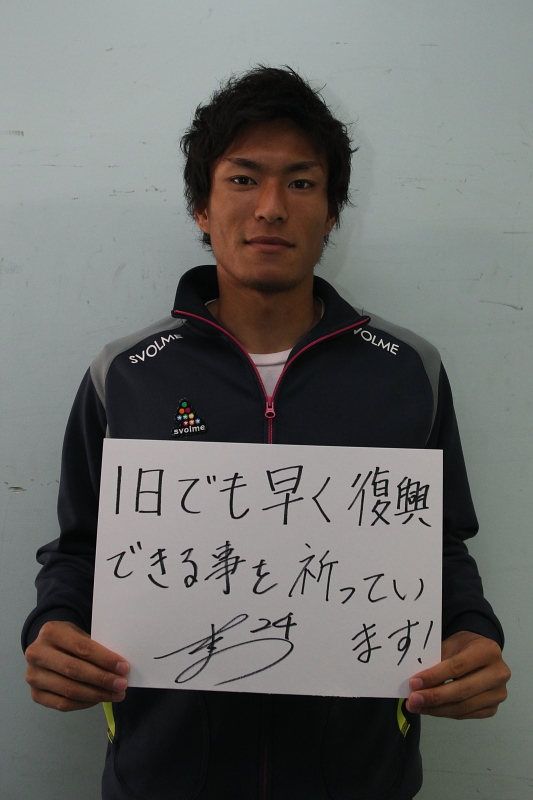 SVOLME
SVOLME
svolme
1日でも早く復興
できる事を祈ってい
ます!
24